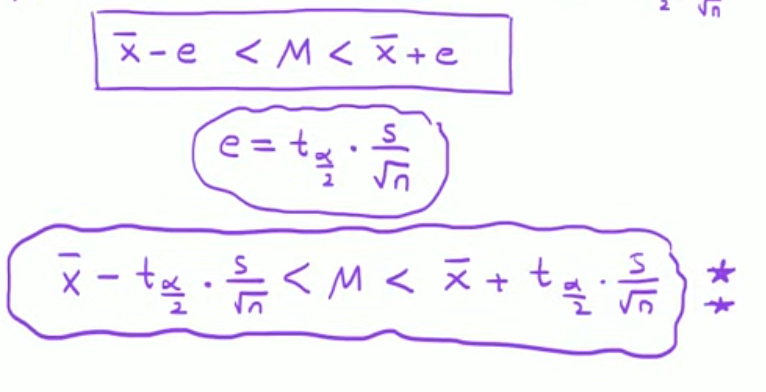 2 √n
x̄ - e < M < x̄ + e
e = t_{α/2} · s/√n
x̄ - t_{α/2} · s/√n < M < x̄ + t_{α/2} · s/√n ★★